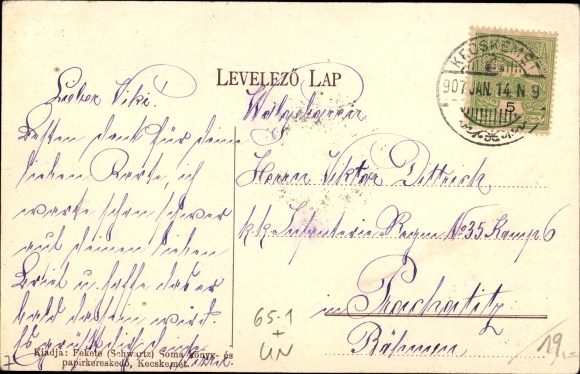 LEVELEZŐ LAP
KECSKEMÉT
907 JAN. 14 N 9
5
Lieber Viki!
Besten Dank für deine
lieben Karte, ich
warte schon schwer
auf deinen lieben
Brief u. hoffe daß er
bald da sein wird.
Es grüßt dich
Wohlgeboren
Herrn Viktor Dittrich
k.k. Infanterie Regm No 35 Komp 6
in Prachatitz
Böhmen
Kiadja: Fekete (Schwartz) Soma könyv- és
papirkereskedő, Kecskemét.
65-1
+
UN
19,-